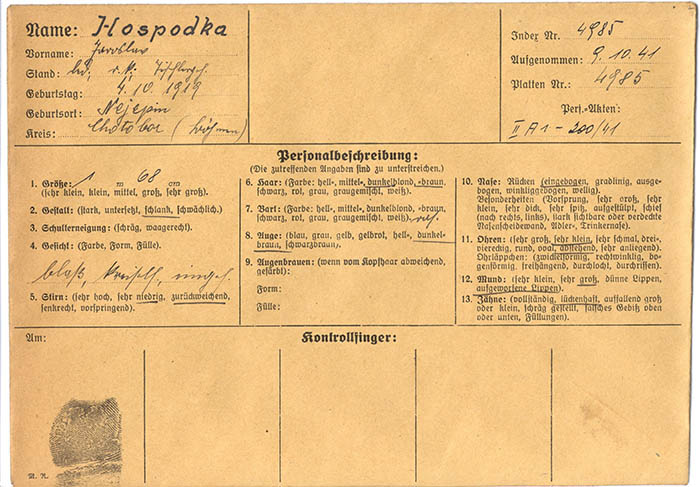 Name: Hospodka
Vorname: Jaroslav
Stand: led. r.k. Tischlergeh.
Geburtstag: 4. 10. 1919
Geburtsort: Nejepin
Kreis: Chotobor (Böhmen)
Index Nr. 4985
Aufgenommen: 9. 10. 41
Platten Nr.: 4985
Pers.-Akten:
II A 1 - 200/41
Personalbeschreibung:
(Die zutreffenden Angaben sind zu unterstreichen.)
1. Größe: 1 m 68 cm
(sehr klein, klein, mittel, groß, sehr groß).
2. Gestalt: (stark, untersetzt, schlank, schwächlich).
3. Schulterneigung: (schräg, waagerecht).
4. Gesicht: (Farbe, Form, Fülle).
blaß,
5. Stirn: (sehr hoch, sehr niedrig, zurückweichend,
senkrecht, vorspringend).
6. Haar: (Farbe: hell-, mittel-, dunkelblond, -braun,
schwarz, rot, grau, graugemischt, weiß).
7. Bart: (Farbe: hell-, mittel-, dunkelblond, -braun,
schwarz, rot, grau, graugemischt, weiß).
8. Auge: (blau, grau, gelb, gelbrot, hell-, dunkel-
braun, schwarzbraun).
9. Augenbrauen: (wenn vom Kopfhaar abweichend,
gefärbt):
Form:
Fülle:
10. Nase: Rücken (eingebogen, gradlinig, ausge-
bogen, winkliggebogen, wellig).
Besonderheiten (Vorsprung, sehr groß, sehr
klein, sehr dick, sehr spitz, aufgestülpt, schief
(nach rechts, links), stark sichtbare oder verdeckte
Nasenscheidewand, Adler-, Trinkernase).
11. Ohren: (sehr groß, sehr klein, sehr schmal, drei-,
viereckig, rund, oval, abstehend, sehr anliegend).
Ohrläppchen: (zwickelförmig, rechtwinklig, bo-
genförmig, freihängend, durchlocht, durchrissen).
12. Mund: (sehr klein, sehr groß, dünne Lippen,
aufgeworfene Lippen).
13. Zähne: (vollständig, lückenhaft, auffallend groß
oder klein, schräg gestellt, falsches Gebiß oben
oder unten, Füllungen).
Am:
Kontrollfinger: